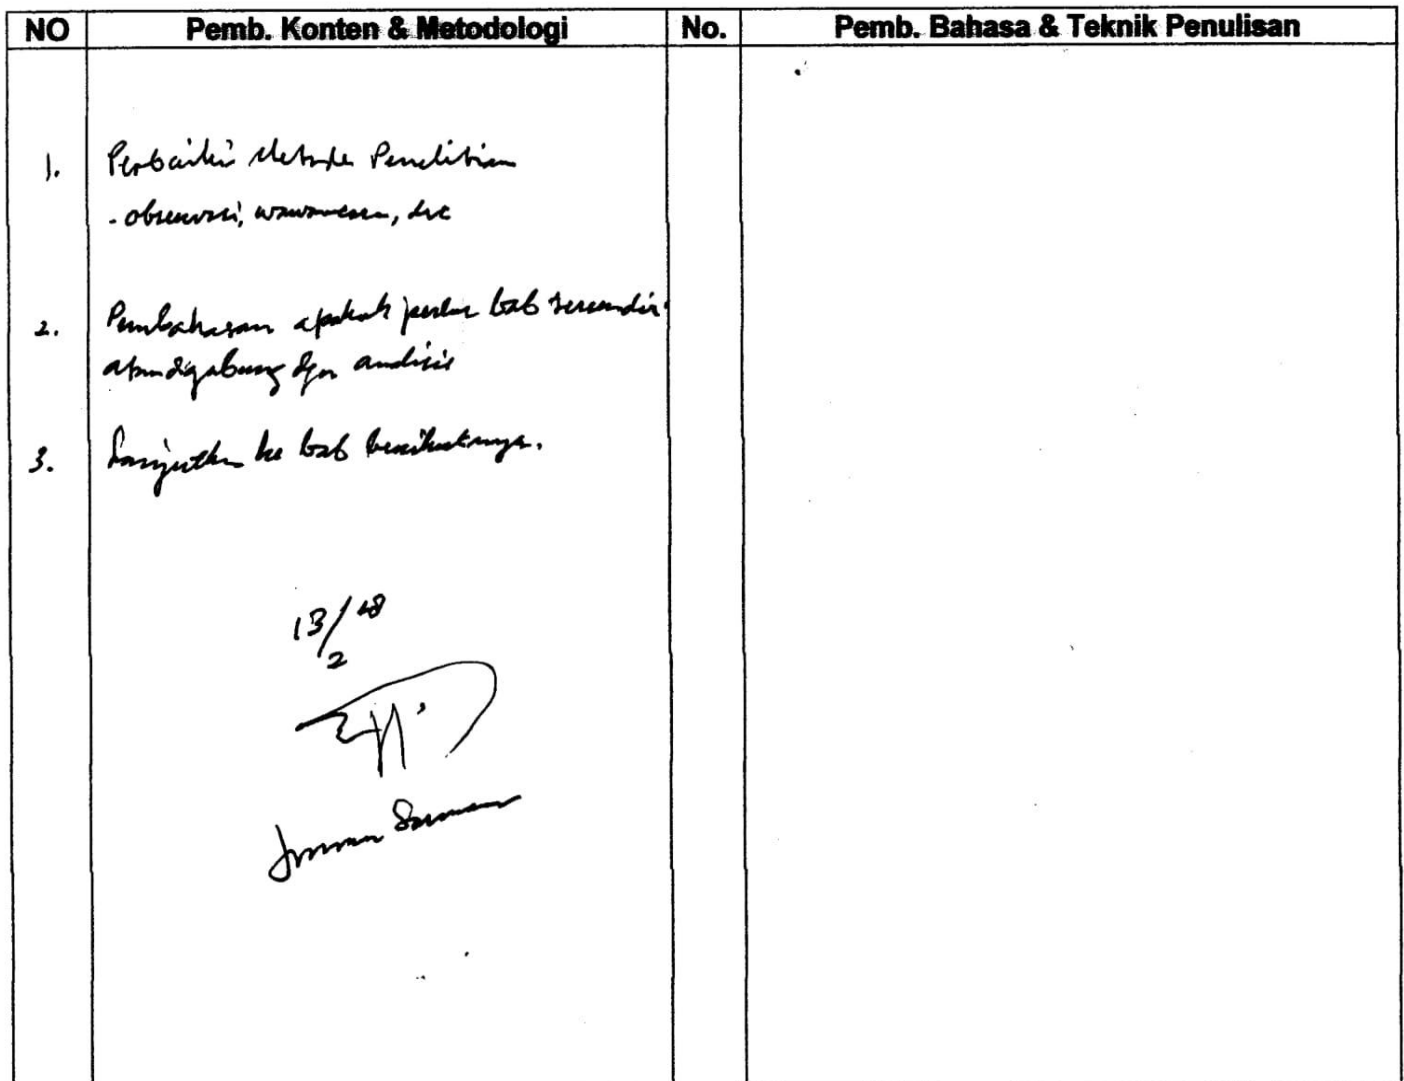 NO Pemb. Konten & Metodologi No. Pemb. Bahasa & Teknik Penulisan
1. Perbaiki Metode Penelitian
- observasi, wawancara, dll
2. Pembahasan apakah perlu bab tersendiri
atau digabung dgn analisis
3. Lanjutkan ke bab berikutnya.
13/2 18